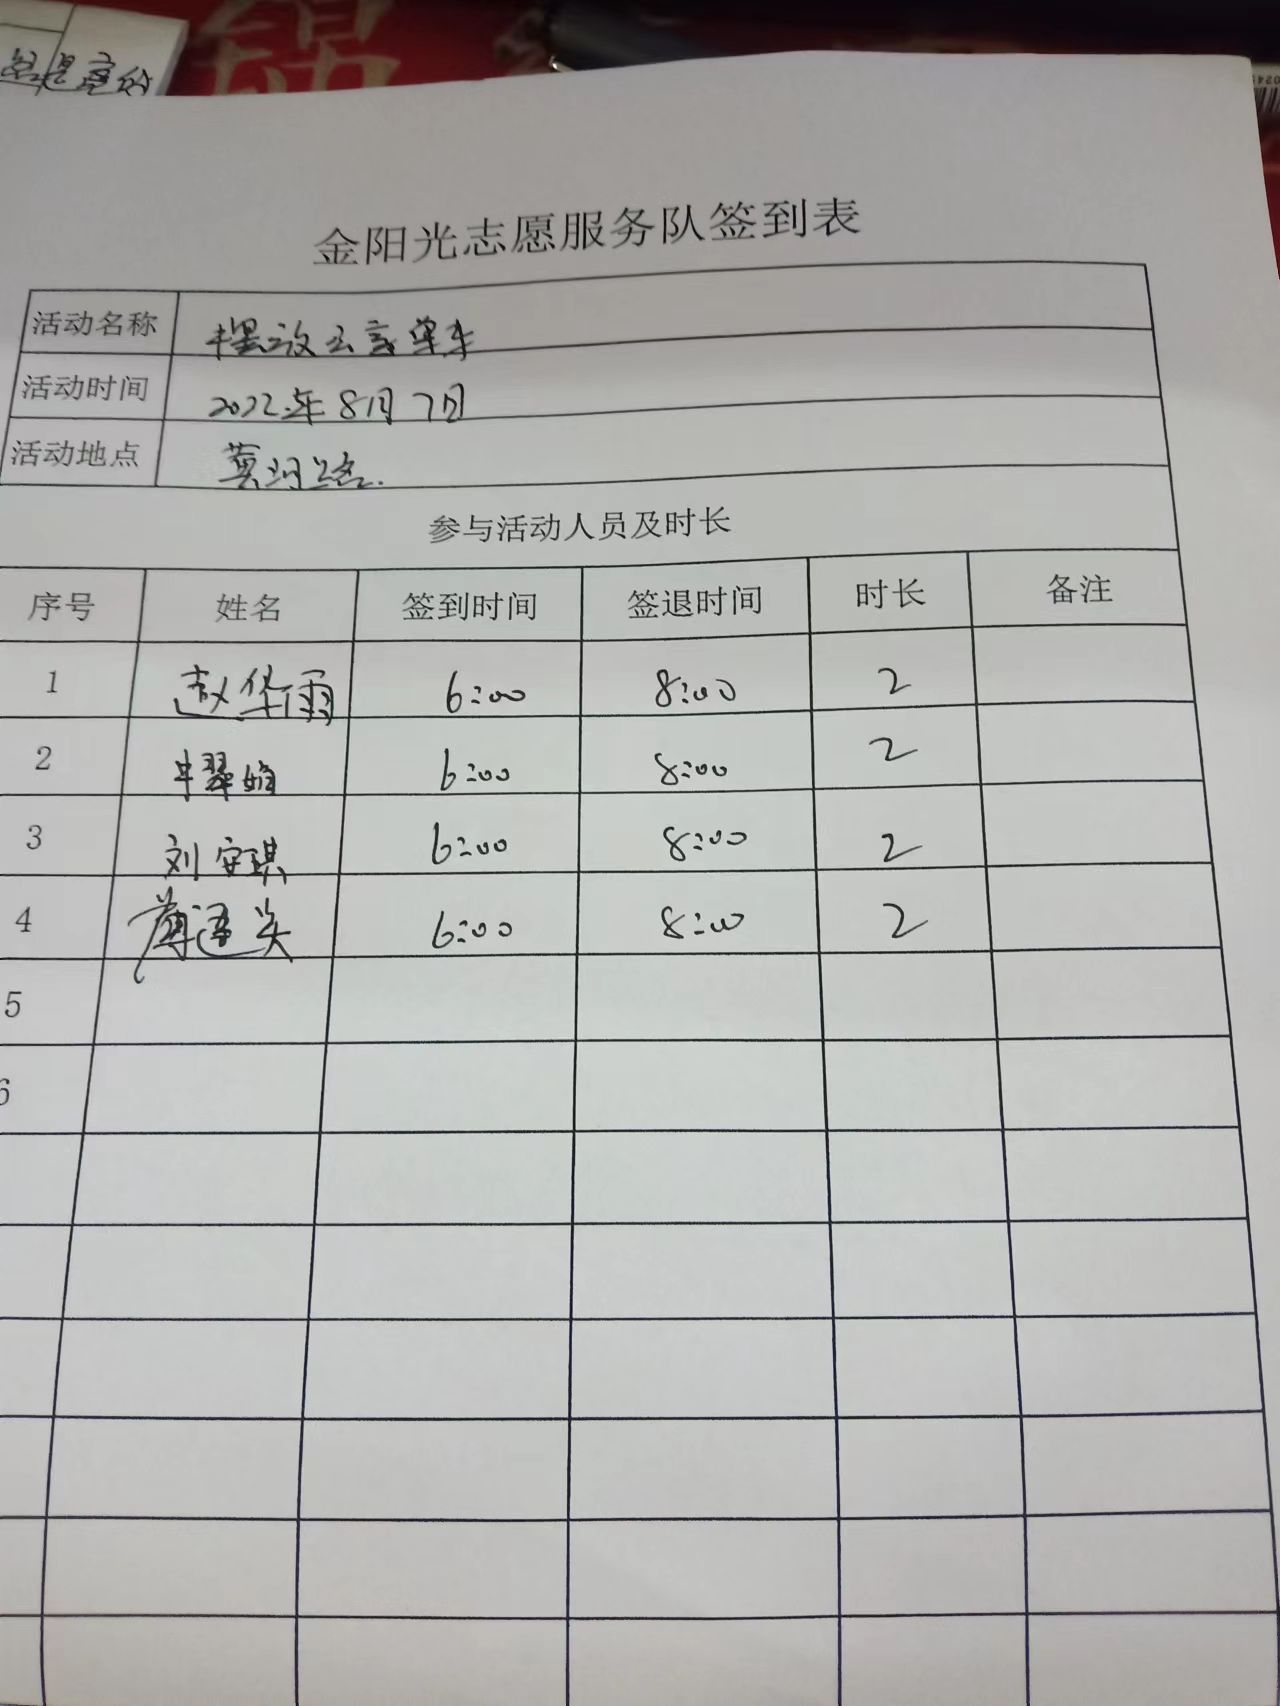 金阳光志愿服务队签到表
活动名称 摆放共享单车
活动时间 2022年8月7日
活动地点 黄河路.
参与活动人员及时长
序号 姓名 签到时间 签退时间 时长 备注
1 赵华雨 6:00 8:00 2
2 6:00 8:00 2
3 刘安琪 6:00 8:00 2
4 6:00 8:00 2
5
6